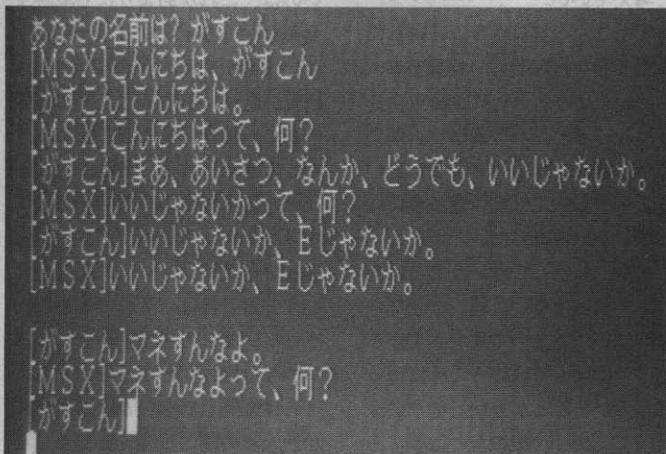 あなたの名前は? がすこん
[MSX]こんにちは、がすこん
[がすこん]こんにちは。
[MSX]こんにちはって、何?
[がすこん]まあ、あいさつ、なんか、どうでも、いいじゃないか。
[MSX]いいじゃないかって、何?
[がすこん]いいじゃないか、Eじゃないか。
[MSX]いいじゃないか、Eじゃないか。
[がすこん]マネすんなよ。
[MSX]マネすんなよって、何?
[がすこん]